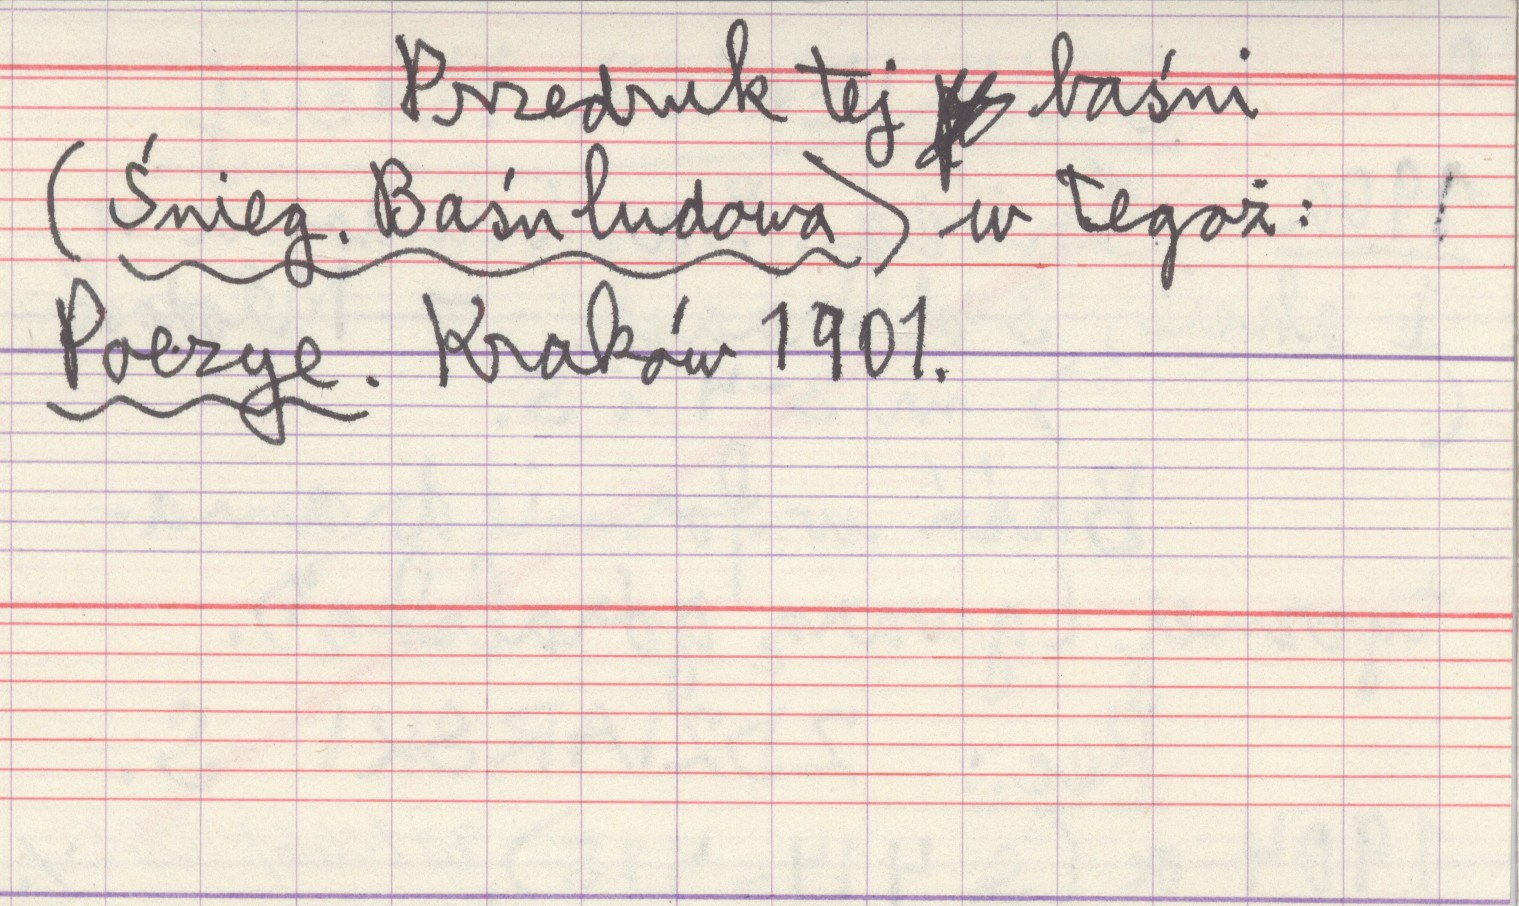 Przedruk tej baśni
(Śnieg. Baśń ludowa) w tegoż:
Poezye. Kraków 1901.